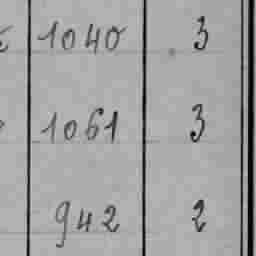 1040 3
1061 3
942 2